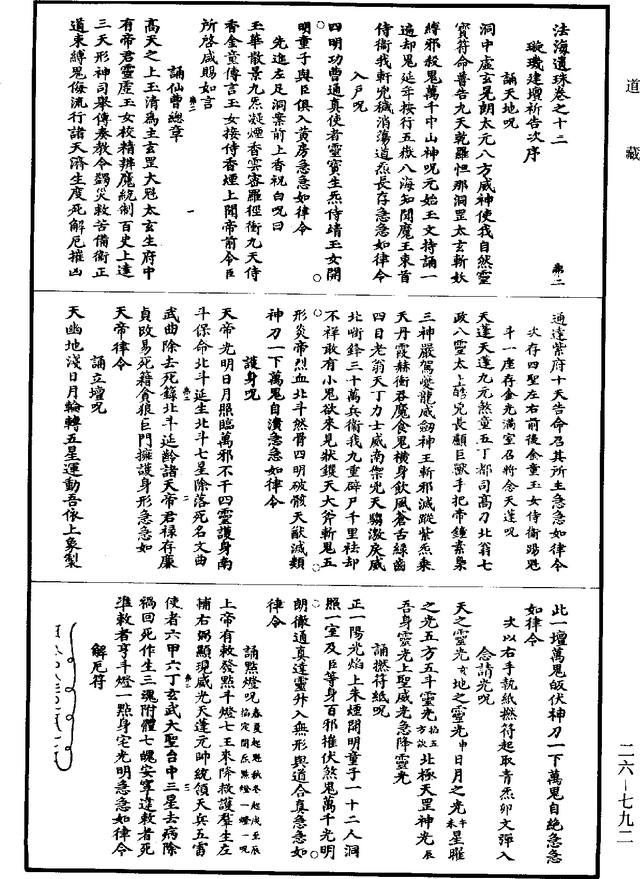 道藏
法海遺珠卷之十二
璇璣建壇祈告次序
誦天地呪
洞中虛玄晃朗太元八方威神使我自然靈
寶符命普告九天乾羅怛那洞罡太玄斬妖
縛邪殺鬼萬千中山神呪元始玉文持誦一
遍却鬼延年按行五嶽八海知聞魔王束首
侍衛我軒兇穢消蕩道炁長存急急如律令
入戶呪
四明功曹通真使者靈寶生炁侍靖玉女開
明童子與臣俱入黃房急急如律令
先進左足洞案前上香祝白呪曰
玉華散景九炁凝煙香雲密羅徑衝九天侍
香金童傳言玉女接侍香煙上聞帝前令臣
所啓咸賜如言
誦仙曹總章
高天之上玉清爲主玄罡大魁太玄生府中
有帝君靈虛玉女校精辨魔統制百史上達
三天形神司舉傳奏教令蠲災救苦備衛正
道束縛鬼侮流行諸天濟生度死解厄摧凶
通達紫府十天告命召其所主急急如律令
次存四聖左右前後金童玉女侍衛踢魁
斗一座存金光滿室召將念天蓬呪
天蓬天蓬九元煞童五丁都司高刁北翁七
政八靈太上皓兇長顱巨獸手把帝鍾素梟
三神嚴駕夔龍威劒神王斬邪滅蹤紫炁乘
天丹霞赫衝吞魔食鬼橫身飲風蒼舌綠齒
四目老翁天丁力士威南禦兇天騶激戾威
北啣鋒三十萬兵衛我九重辟尸千里袪却
不祥敢有小鬼欲來見狀鑊天大斧斬鬼五
形炎帝烈血北斗然骨四明破骸天猷滅類
神刀一下萬鬼自潰急急如律令
護身呪
天帝光明日月照臨萬邪不干四靈護身南
斗保命北斗延生北斗七星除落死名文曲
武曲除去死籙北斗延齡諸天帝君祿存廉
貞改易死籍貪狼巨門擁護身形急急如
天帝律令
誦立壇呪
天幽地淺日月輪轉五星運動吾依上象製
此一壇萬鬼皈伏神刀一下萬鬼自絶急急
如律令
次以右手執紙撚符起取青炁卯文彈入
念請光呪
天之靈光亥地之靈光申日月之光午未星曜
之光五方五斗靈光北極天罡神光辰
吾身靈光上聖威光急降靈光
誦撚符紙呪
正一陽光焰上朱煙開明童子一十二人洞
照一室及臣等身百邪摧伏煞鬼萬千光明
朗徹通真達靈升入無形與道合真急急如
律令
誦點燈呪
上帝有敕發點千燈七王來降救護羣生左
補右弼顯現威光天蓬元帥統領天兵五雷
使者六甲六丁玄武大聖台中三星去病除
禍回死作生三魂附體七魄安寧違敕者死
準敕者亨斗燈一點身宅光明急急如律令
解厄符
二六—七九二